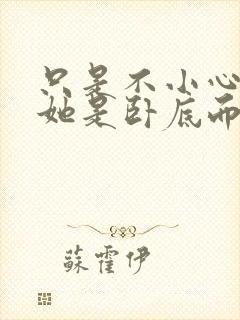 只是不小心
她是卧底而
蘇霍伊